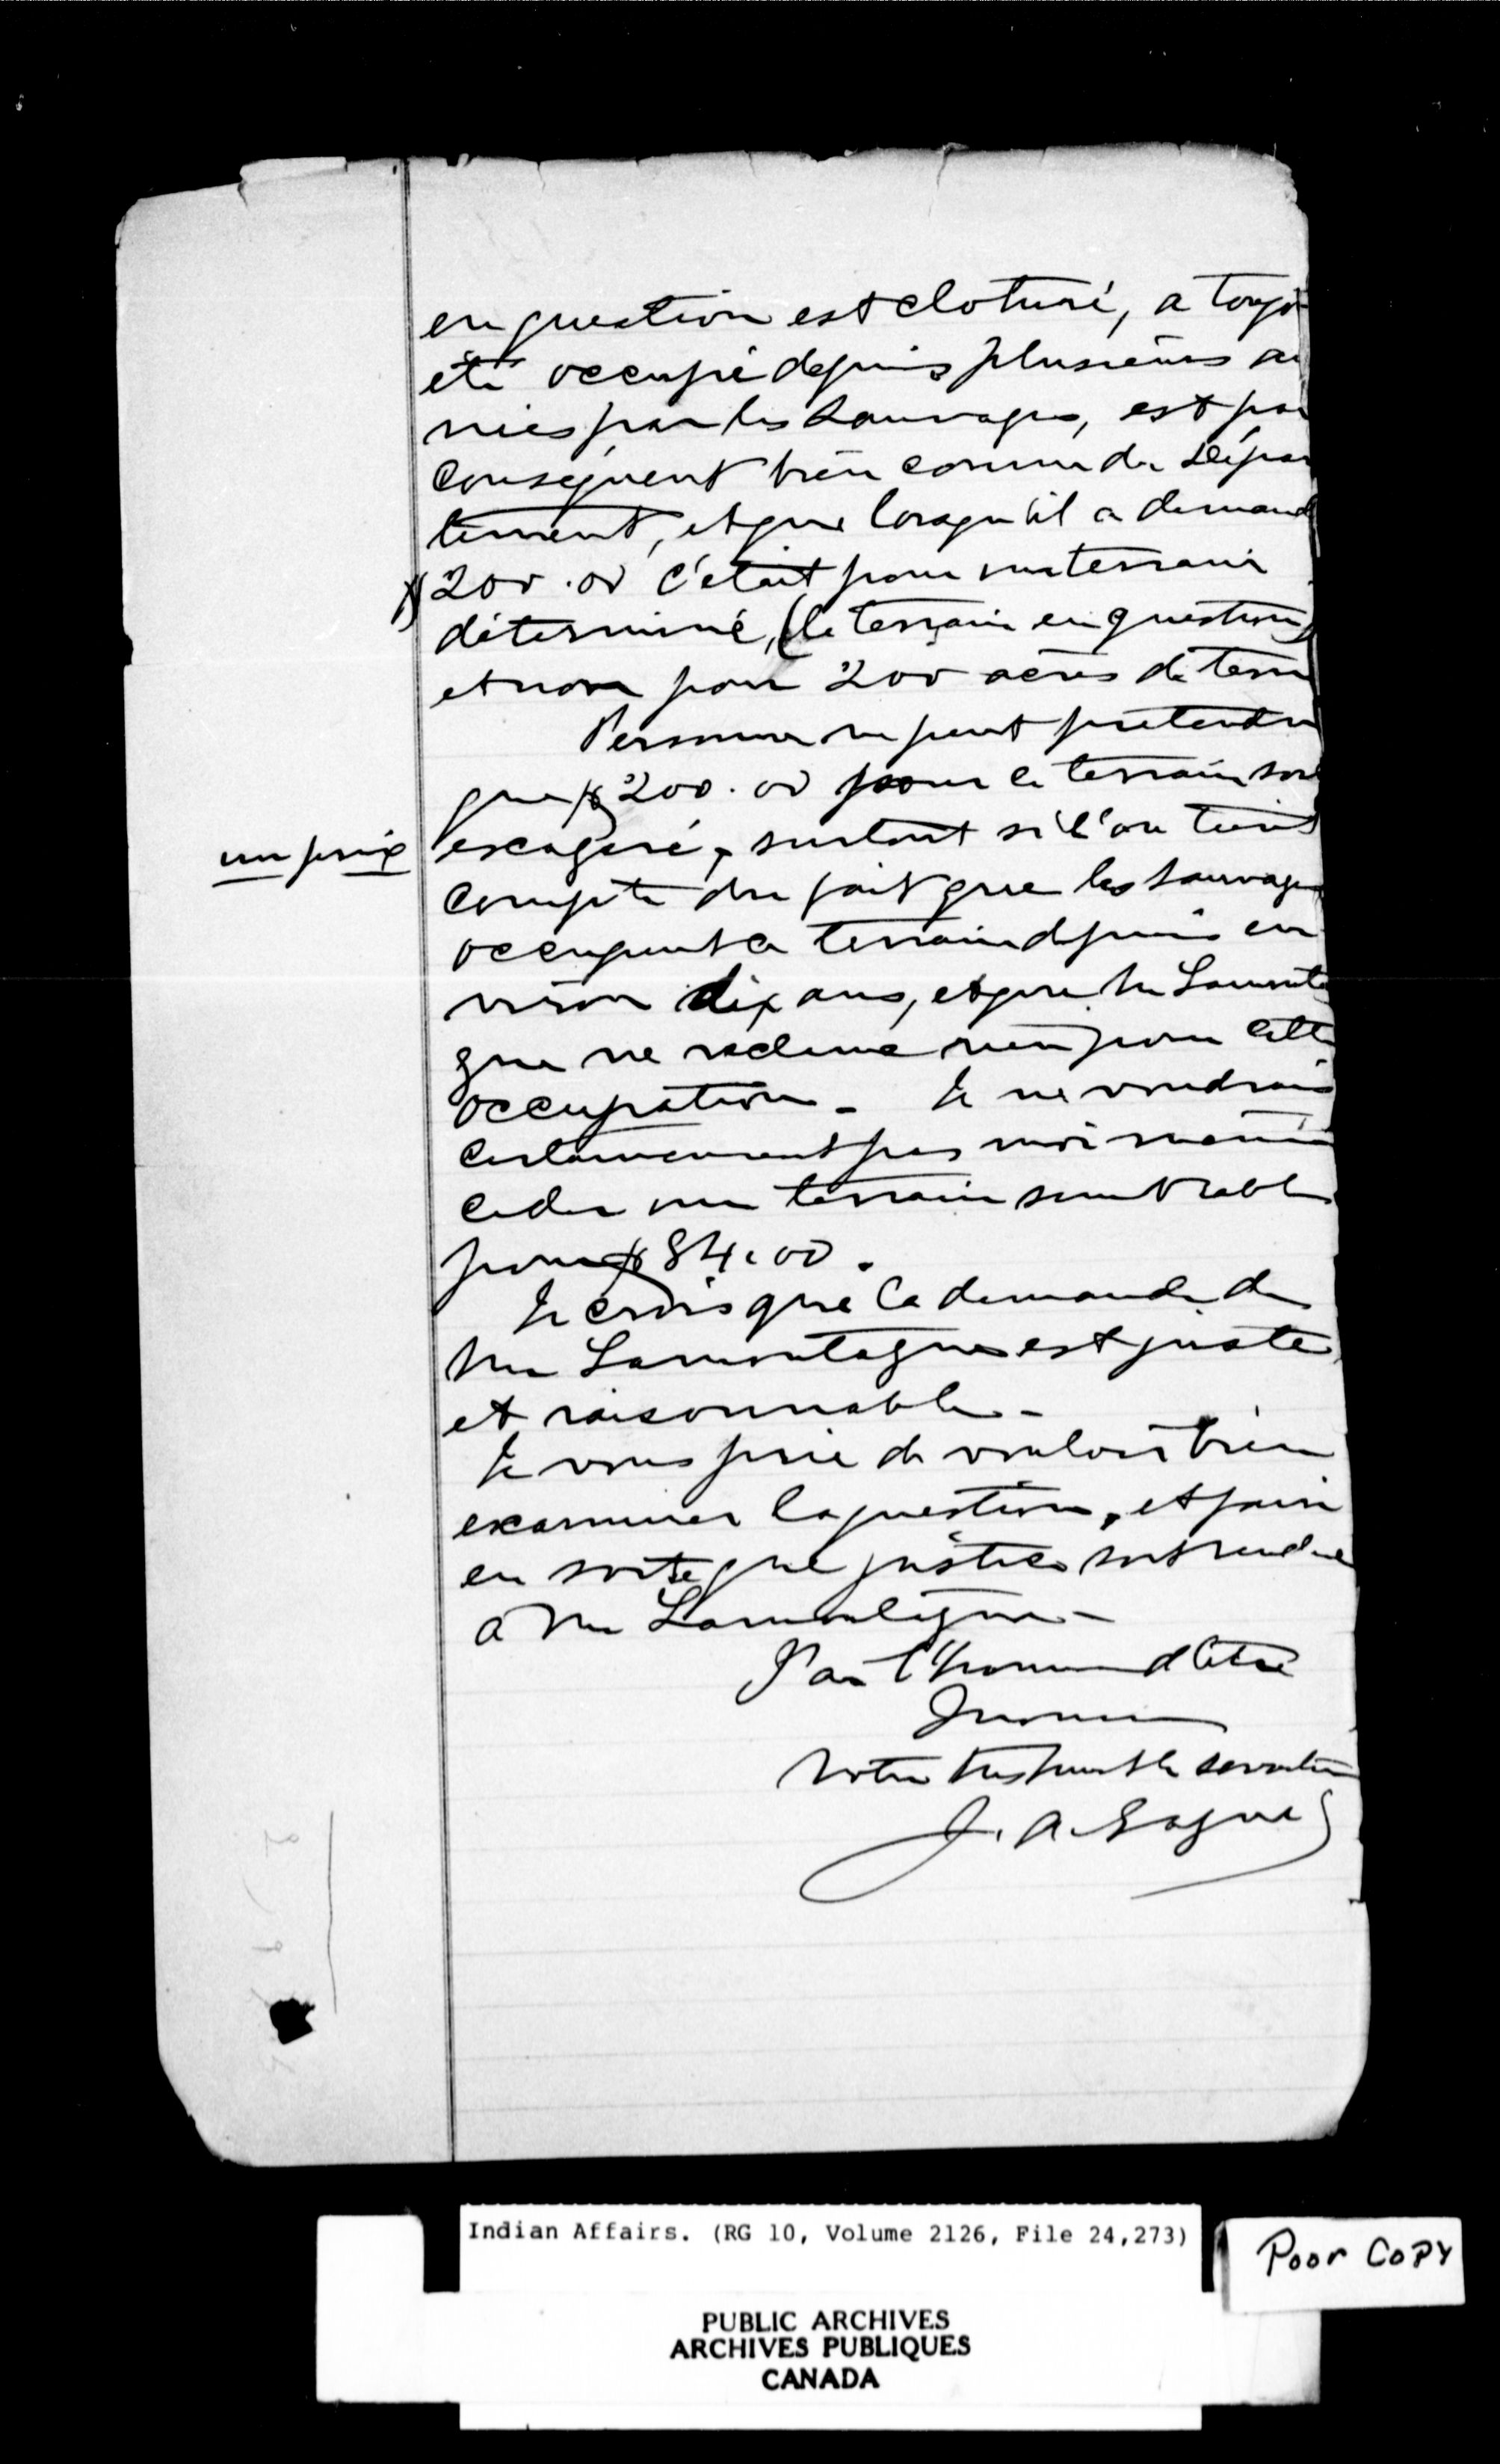 en question est cloturé, a toujo
été occupé depuis plusieurs an
nées par les Sauvages, est par
conséquent bien connu du Dépar
tement, et que lorsqu'il a demand
$200.00 c'était pour un terrain
déterminé, (le terrain en question)
et non pour 200 acres de terre
Personne ne peut prétendre
que $200.00 pour ce terrain soit
un prix exagéré, surtout si l'on tient
compte du fait que les sauvages
occupent ce terrain depuis en
viron dix ans, et que Mr Lamonta
gne ne réclame rien pour cette
occupation. Je ne voudrais
certainement pas moi même
céder un terrain semblable
pour $84.00.
Je crois que la demande de
Mr Lamontagne est juste
et raisonnable.
Je vous prie de vouloir bien
examiner la question, et faire
en sorte que justice soit rendue
a Mr Lamontagne.
J'ai l'honneur d'être
Monsieur
Votre très humble serviteur
J. A. Gagné
Indian Affairs. (RG 10, Volume 2126, File 24,273)
Poor Copy
PUBLIC ARCHIVES
ARCHIVES PUBLIQUES
CANADA